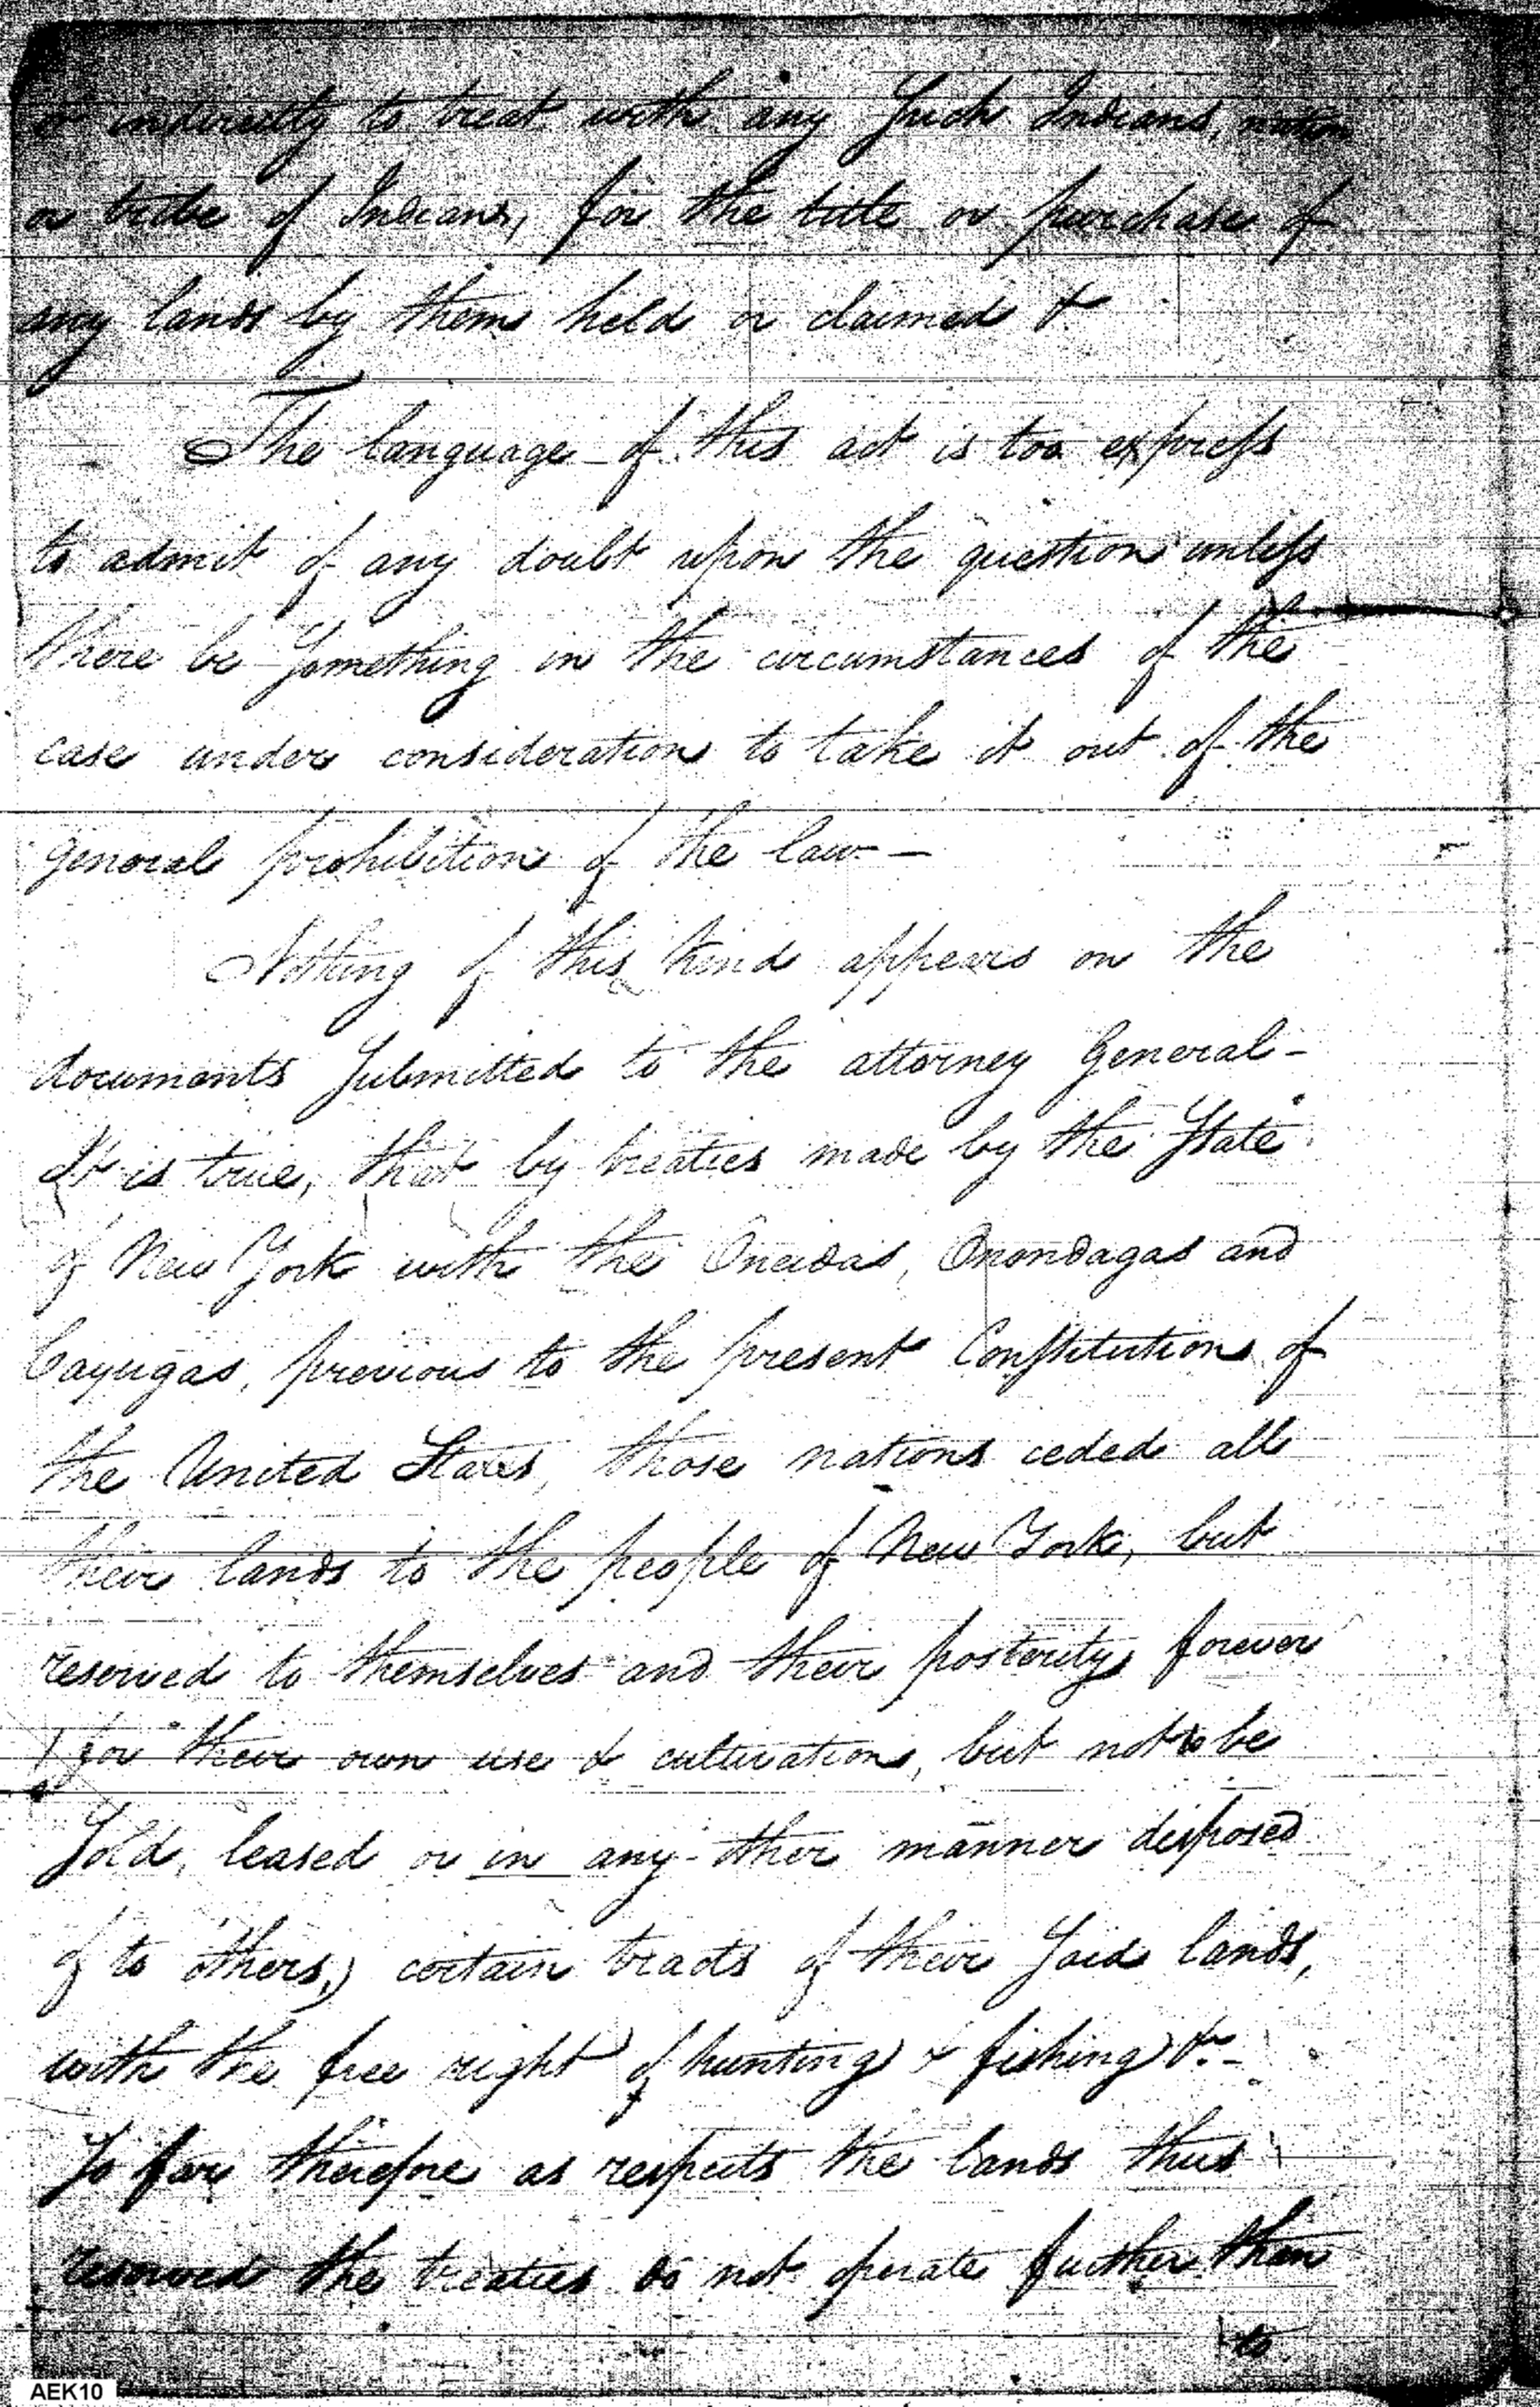 or indirectly to treat with any such Indians, nation
or tribe of Indians, for the title or purchase of
any lands by them held or claimed &
The language of this act is too express
to admit of any doubt upon the question unless
there be something in the circumstances of the
case under consideration to take it out of the
general prohibition of the law —
Nothing of this kind appears on the
documents submitted to the attorney General -
It is true, that by treaties made by the State
of New York with the Oneidas, Onondagas and
Cayugas, previous to the present Constitution of
the United States, those nations ceded all
their lands to the people of New York, but
reserved to themselves and their posterity forever
(for their own use & cultivation, but not to be
sold, leased or in any other manner disposed
of to others,) certain tracts of their said lands,
with the free right of hunting & fishing &c -
So far therefore as respects the lands thus
reserved the treaties do not operate further than
to
AEK10